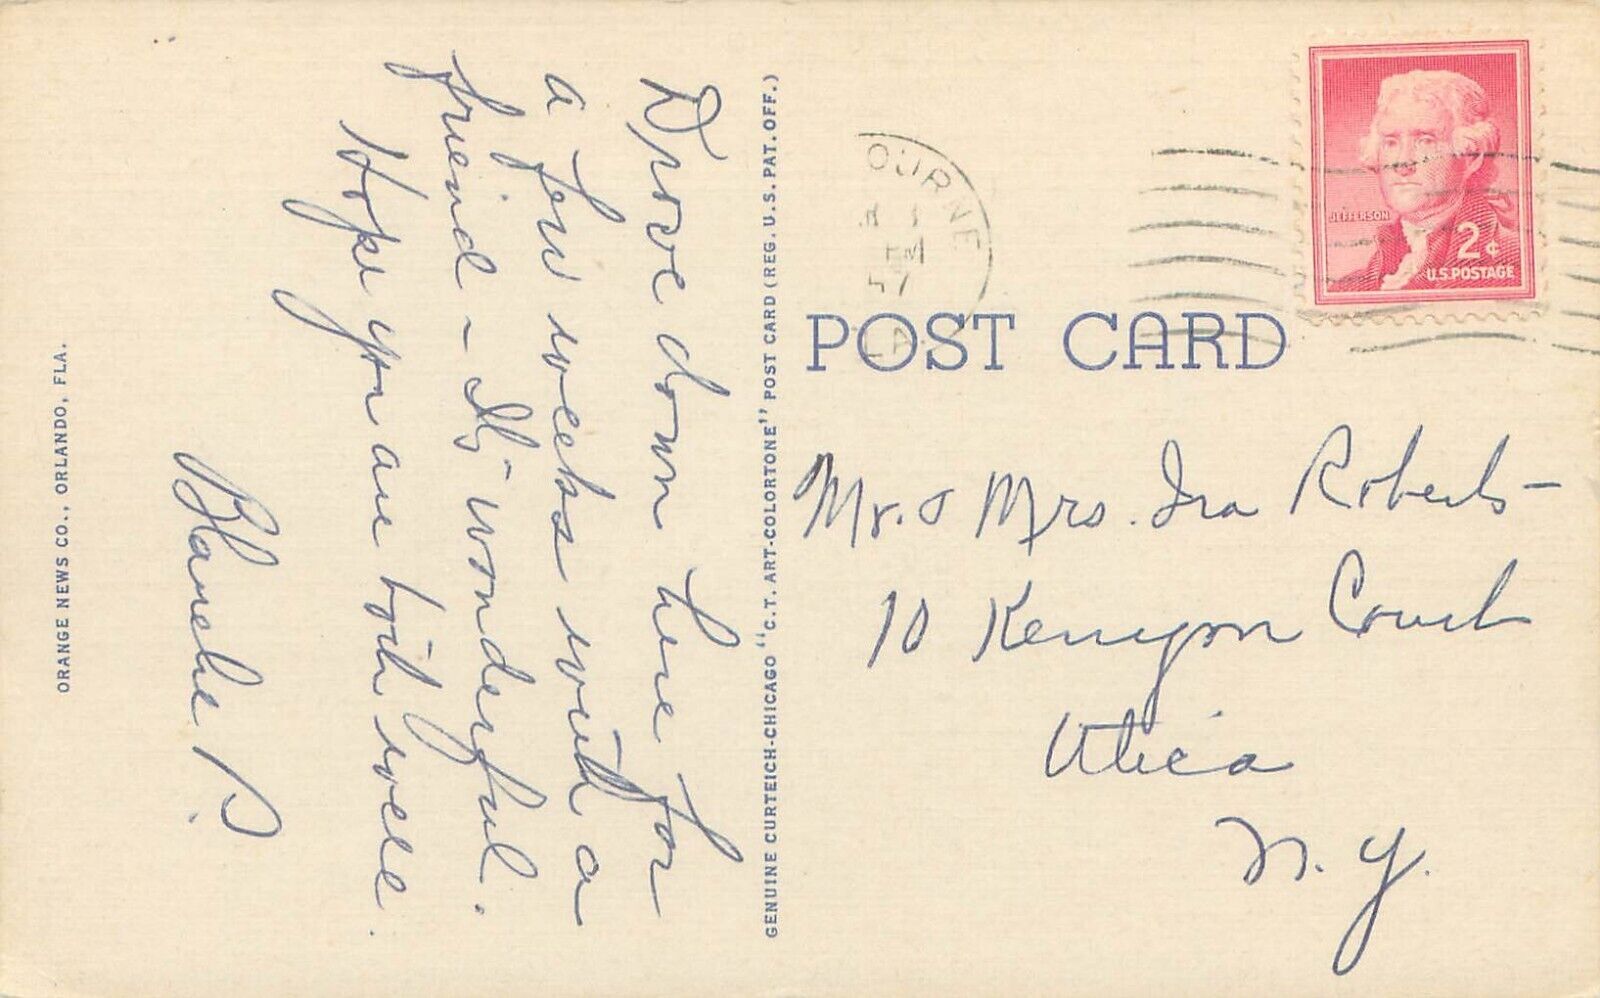 Drove down here for
a few weeks with a
friend - It's wonderful.
Hope you are both well.
Blanche P.
ORANGE NEWS CO., ORLANDO, FLA.
GENUINE CURTEICH-CHICAGO "C.T. ART-COLORTONE" POST CARD (REG. U.S. PAT. OFF.)
OURNE
57
LA
JEFFERSON
2¢
U.S. POSTAGE
POST CARD
Mr. & Mrs. Ira Roberts -
10 Kenyon Court
Utica
N.Y.